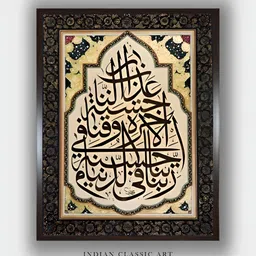 ربنا آتنا في الدنيا
حسنة وفي
الآخرة حسنة وقنا
عذاب النار
INDIAN CLASSIC ART